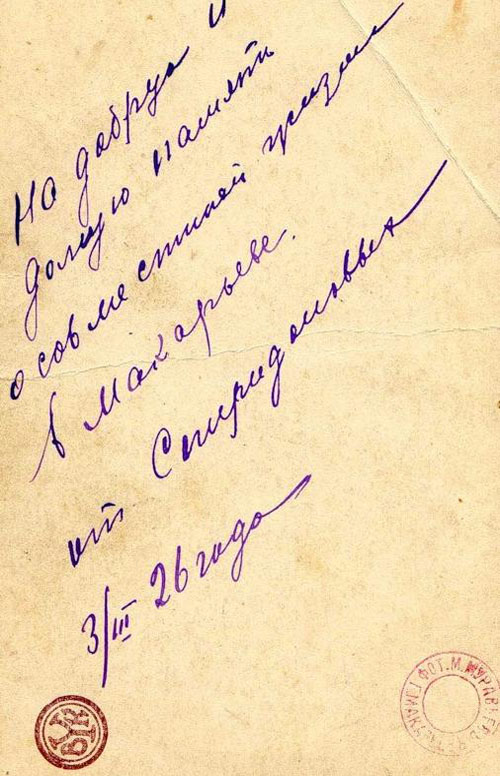 На добрую и
долгую память
о совместной жизни
в Макарьеве.
от Спиридоновых
3/III 26 года
ФОТ. М. МУРАВ